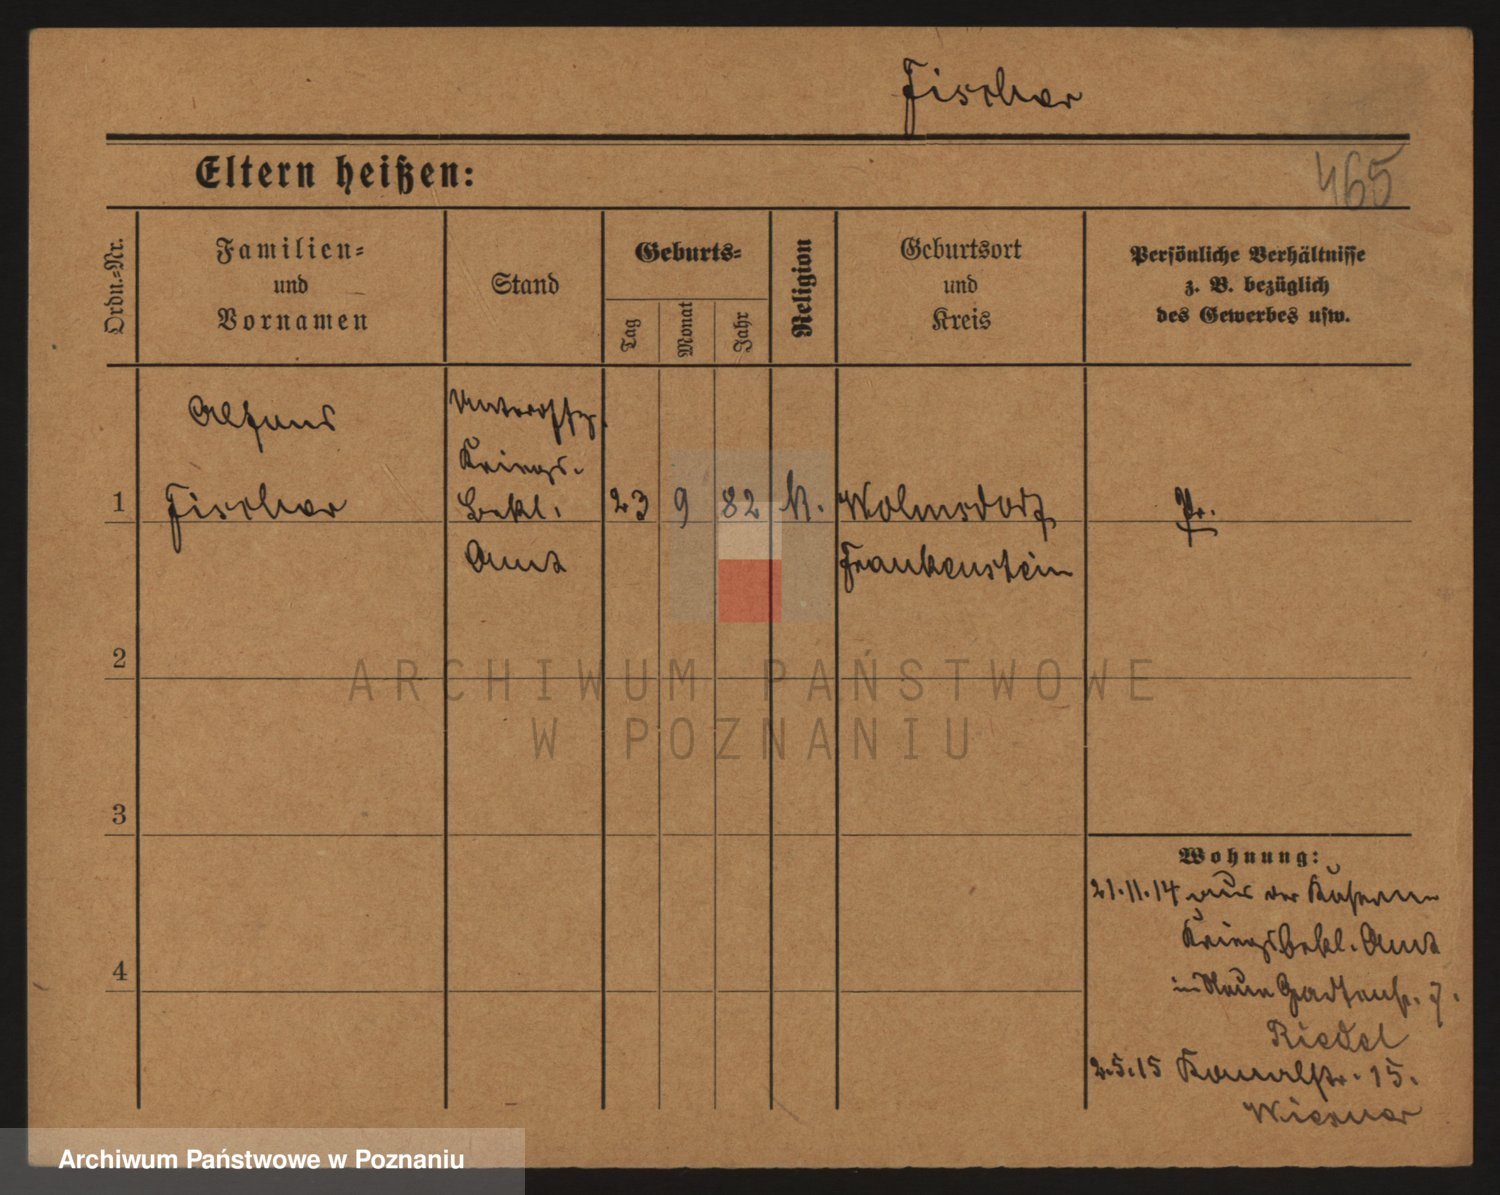 Fischer
Eltern heißen:
465
Ordn.-Nr.
Familien-
und
Vornamen
Stand
Geburts-
Tag
Monat
Jahr
Religion
Geburtsort
und
Kreis
Persönliche Verhältnisse
z. B. bezüglich
des Gewerbes usw.
Alfons
Fischer
Unteroffz.
Kriegs-
Bekl.
Amt
1
23
9
82
K.
Wolmsdorf
Frankenstein
Pr.
2
ARCHIWUM PAŃSTWOWE
W POZNANIU
3
4
Wohnung:
21.11.14 aus der Kaserne
Kriegsbekl. Amt
in Neue Gartenstr. 7.
Riedel
2.5.15 Kanalstr. 15.
Wiesner
Archiwum Państwowe w Poznaniu